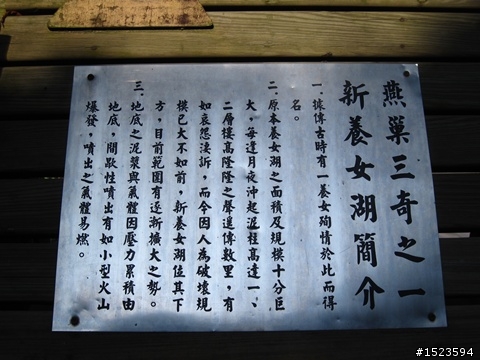 燕巢三奇之一
新養女湖簡介
一.據傳古時有一養女殉情於此而得
名。
二.原本養女湖之面積及規模十分巨
大，每逢月夜沖起泥柱高達一、
二層樓高隆隆之聲遠傳數里，有
如哀怨淒訴，而今因人為破壞規
模已大不如前，新養女湖位其下
方，目前範圍有逐漸擴大之勢。
三.地底之泥漿與氣體因壓力累積由
地底，間歇性噴出有如小型火山
爆發，噴出之氣體易燃。
#1523594